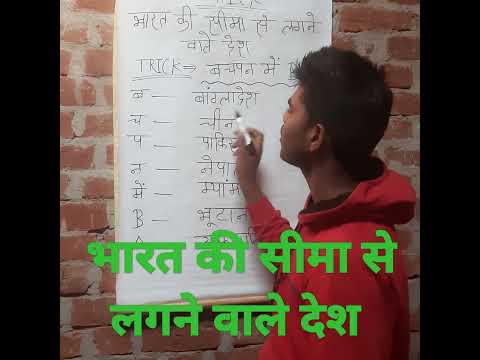 TRICK
भारत की सीमा से लगने
वाले देश
TRICK ⇒ बचपन में
ब — बांग्लादेश
च — चीन
प — पाकि
न — नेपा
में — म्यांम
B — भूटान
भारत की सीमा से
लगने वाले देश